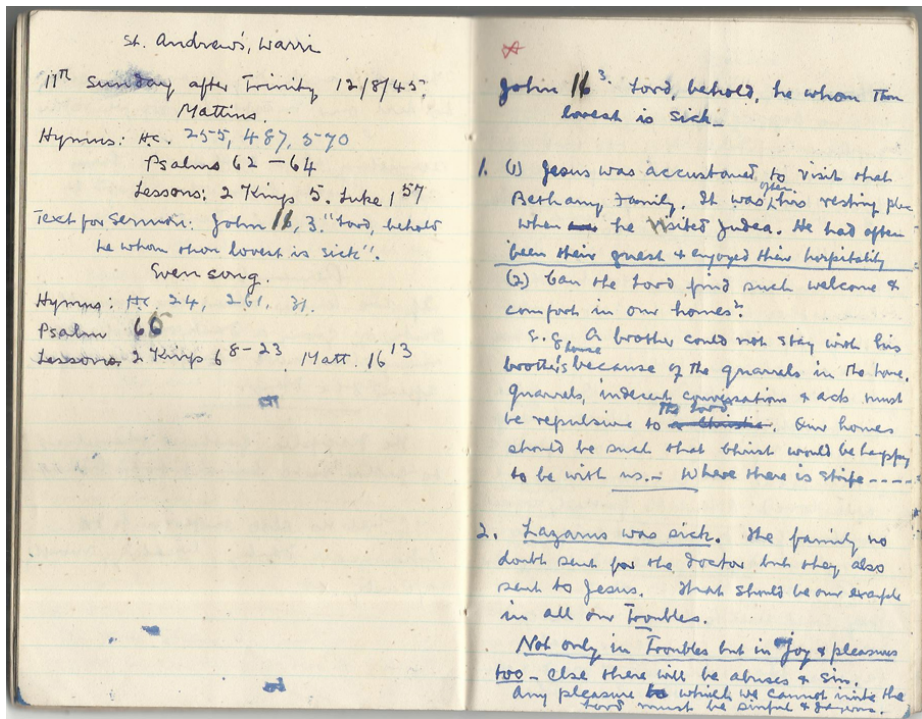 St. Andrew's, Warri
11th Sunday after Trinity 12/8/45.
Mattins.
Hymns: H.C. 255, 487, 570
Psalms 62 – 64
Lessons: 2 Kings 5. Luke 1 57
Text for Sermon: John 11, 3. "Lord, behold
he whom thou lovest is sick".
Evensong.
Hymns: H.C. 24, 261, 31.
Psalm 66
Lessons. 2 Kings 6 8-23. Matt. 16 13
John 11 3. Lord, behold, he whom Thou
lovest is sick –
1. (1) Jesus was accustomed to visit that
Bethany Family. It was often his resting place
when he visited Judea. He had often
been their guest & enjoyed their hospitality
(2) Can the Lord find such welcome &
comfort in our homes?
E.g. A brother could not stay with his
brother's house because of the quarrels in the home.
Quarrels, indecent conversations & acts must
be repulsive to the Lord. Our homes
should be such that Christ would be happy
to be with us. – Where there is strife -----
2. Lazarus was sick. The family no
doubt sent for the doctor but they also
sent to Jesus. That should be our example
in all our Troubles.
Not only in Troubles but in Joy & pleasures
too – else there will be abuses & sin.
Any pleasure to which we cannot invite the
Lord must be sinful &